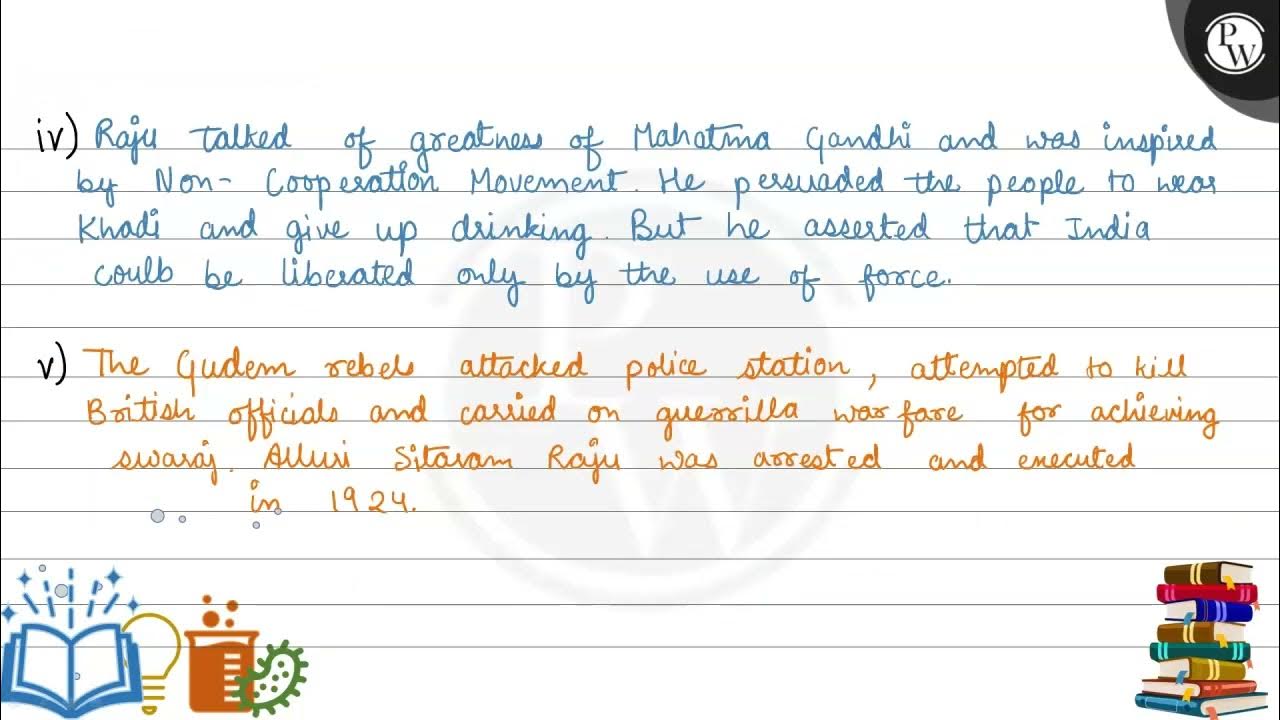 PW
iv) Raju talked of greatness of Mahatma Gandhi and was inspired
by Non- Cooperation Movement. He persuaded the people to wear
Khadi and give up drinking. But he asserted that India
could be liberated only by the use of force.
v) The Gudem rebels attacked police station, attempted to kill
British officials and carried on guerrilla warfare for achieving
swaraj. Alluri Sitaram Raju was arrested and executed
in 1924.
PW